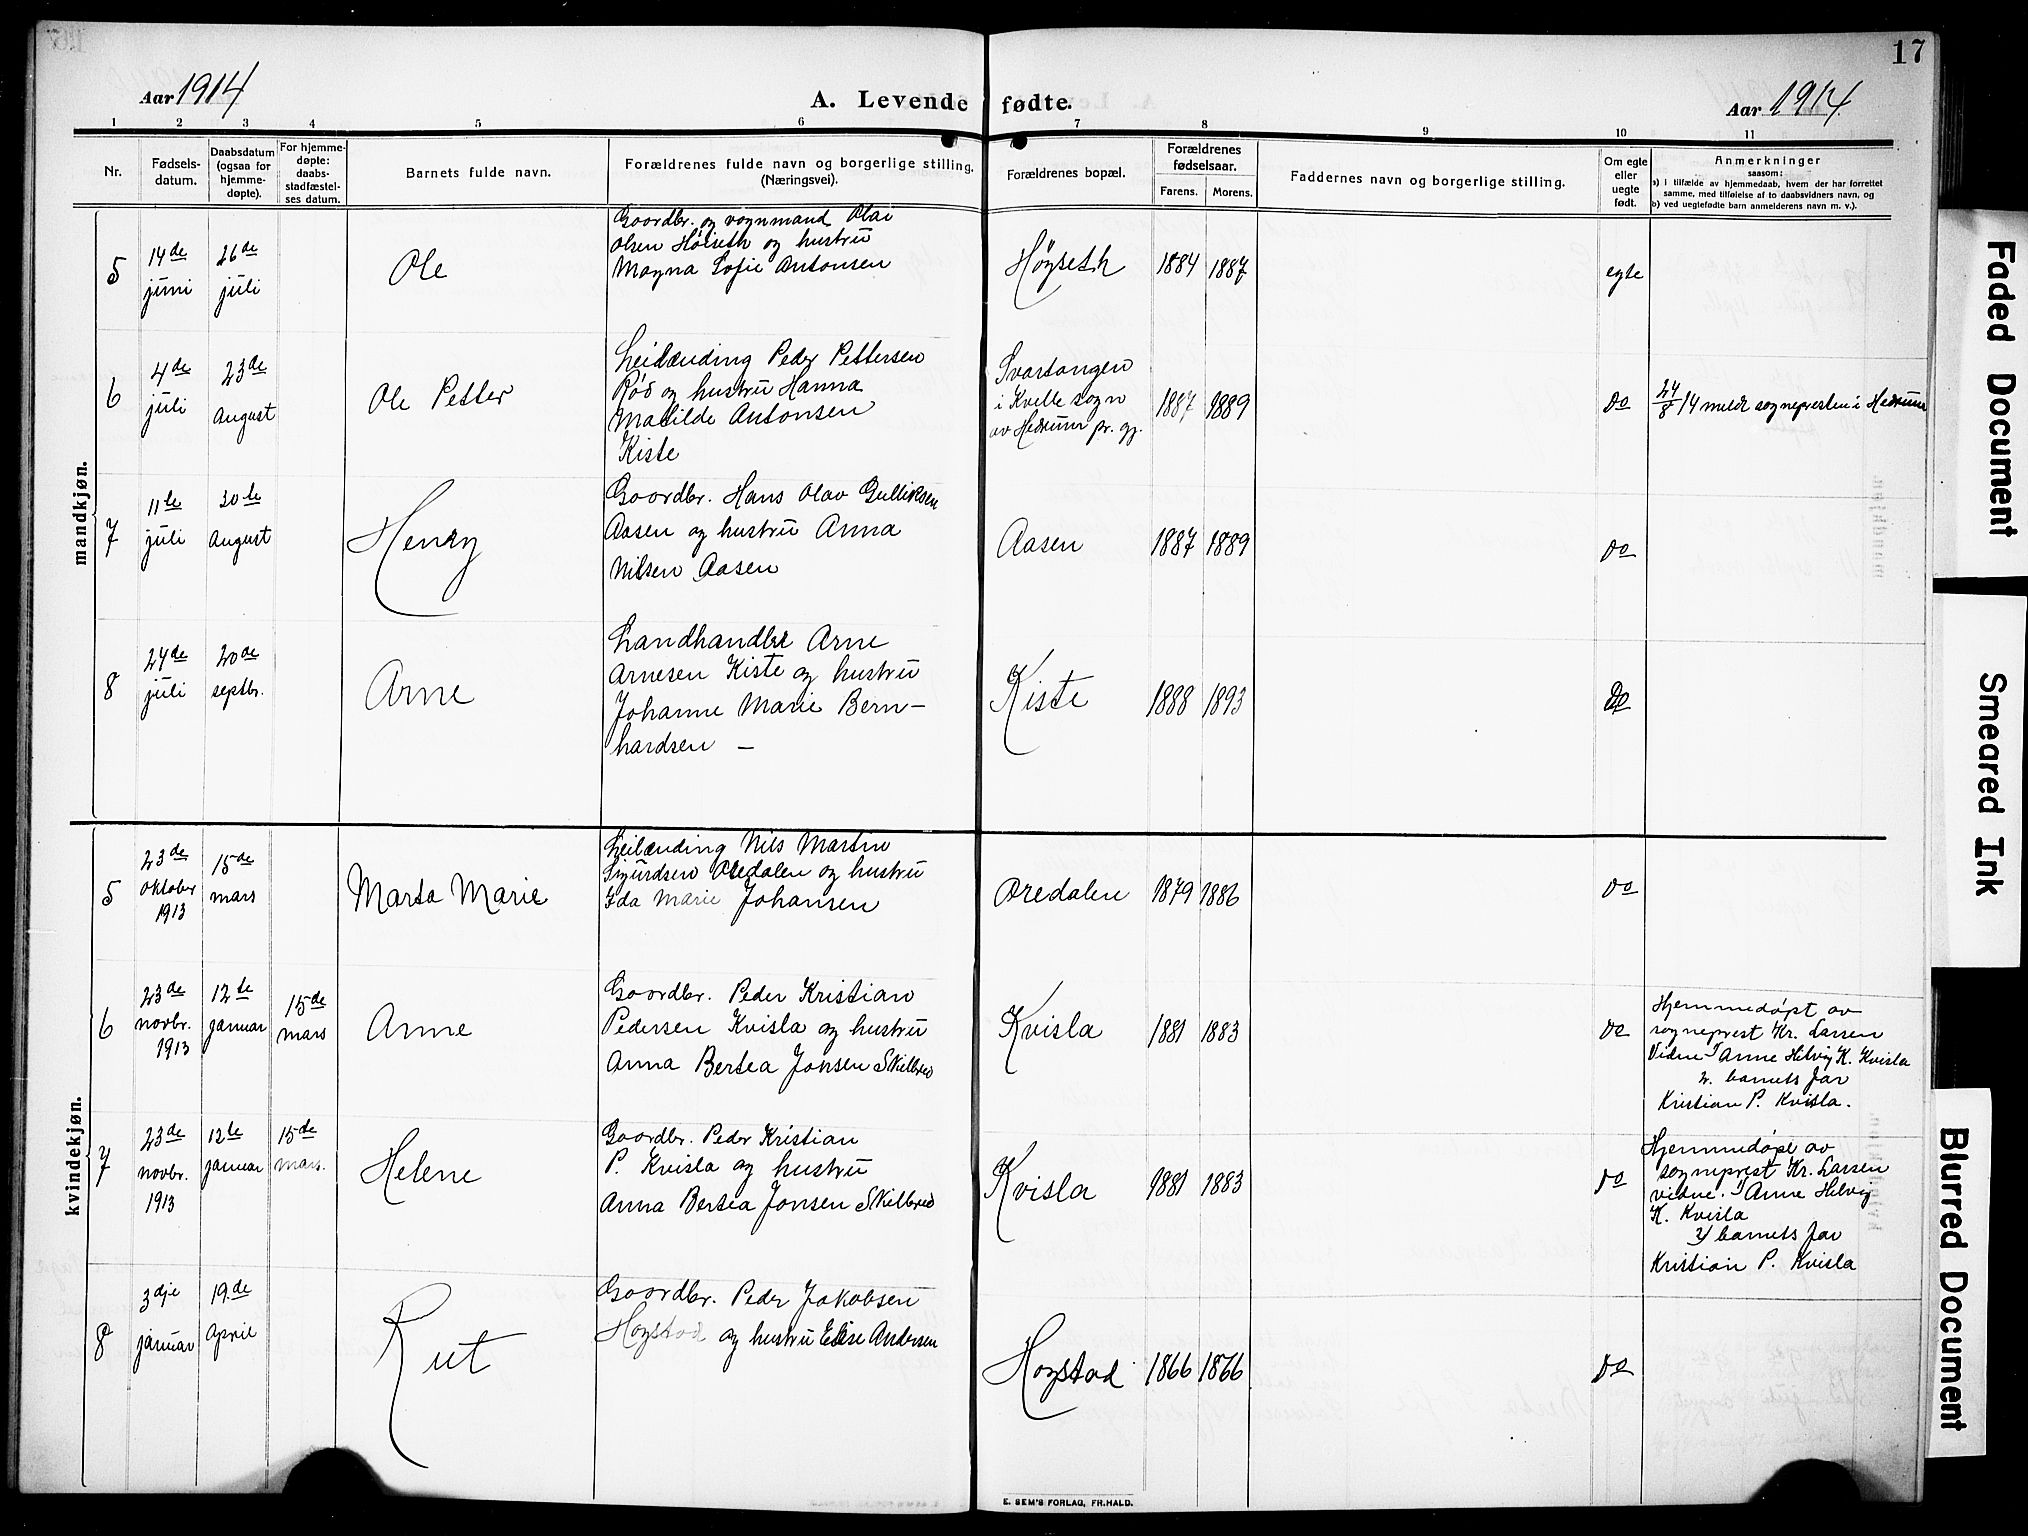 17
Aar 1914
A. Levende fødte.
Aar 1914.
1 2 3 4 5 6 7 8 9 10 11
Nr.
Fødsels-
datum.
Daabsdatum
(ogsaa for
hjemme-
døpte).
For hjemme-
døpte:
daabs-
stadfæstel-
ses datum.
Barnets fulde navn.
Forældrenes fulde navn og borgerlige stilling.
(Næringsvei).
Forældrenes bopæl.
Forældrenes
fødselsaar.
Farens. Morens.
Faddernes navn og borgerlige stilling.
Om egte
eller
uegte
født.
Anmerkninger
saasom:
a) i tilfælde av hjemmedaab, hvem der har forrettet
samme, med tilføielse af to daabsvidners navn, og
b) ved uegtefødte barn anmelderens navn m. v.).
mandkjøn.
5
14de
juni
26de
juli
Ole
Gaardbr. og vognmand Olai
Olsen Høiseth og hustru
Magna Sofie Antonsen
Høyseth
1884 1887
egte
6
4de
juli
23de
August
Ole Petter
Leilænding Peder Pettersen
Rød og hustru Hanna
Matilde Antonsen
Kiste
Svartangen
i Kvelle sogn
av Hedrum pr. gj.
1887 1889
do
24/8 14 meldt sognepresten i Hedrum
7
11te
juli
30te
August
Henry
Gaardbr. Hans Olav Gulliksen
Aasen og hustru Anna
Nilsen Aasen
Aasen
1887 1889
do
8
24de
juli
20de
septbr.
Arne
Landhandler Arne
Arnesen Kiste og hustru
Johanne Marie Bern-
hardsen —
Kiste
1888 1893
do
kvindekjøn.
5
23de
oktober
1913
15de
mars
Marta Marie
Leilænding Nils Martin
Sigurdsen Oredalen og hustru
Ida Marie Johansen
Oredalen
1879 1886
do
6
23de
novbr.
1913
12te
januar
15de
mars
Anne
Gaardbr. Peder Kristian
Pedersen Kvisla og hustru
Anna Bertea Jonsen Skilbred
Kvisla
1881 1883
do
Hjemmedøpt av
sogneprest Kr. Larsen
Vidne 1 Anne Helvig K. Kvisla
2. barnets far
Kristian P. Kvisla.
7
23de
novbr.
1913
12te
januar
15de
mars.
Helene
Gaardbr. Peder Kristian
P. Kvisla og hustru
Anna Bertea Jonsen Skilbred
Kvisla
1881 1883
do
Hjemmedøpt av
sogneprest Kr. Larsen
vidne. 1 Anne Helvig
K. Kvisla
2) barnets far
Kristian P. Kvisla
8
3dje
januar
19de
April
Rut
Gaardbr. Peder Jakobsen
Hogstad og hustru Elise Andersen
Hogstad
1866 1866
do
E. SEM'S FORLAG, FR.HALD.
Faded Document
Smeared Ink
Blurred Document